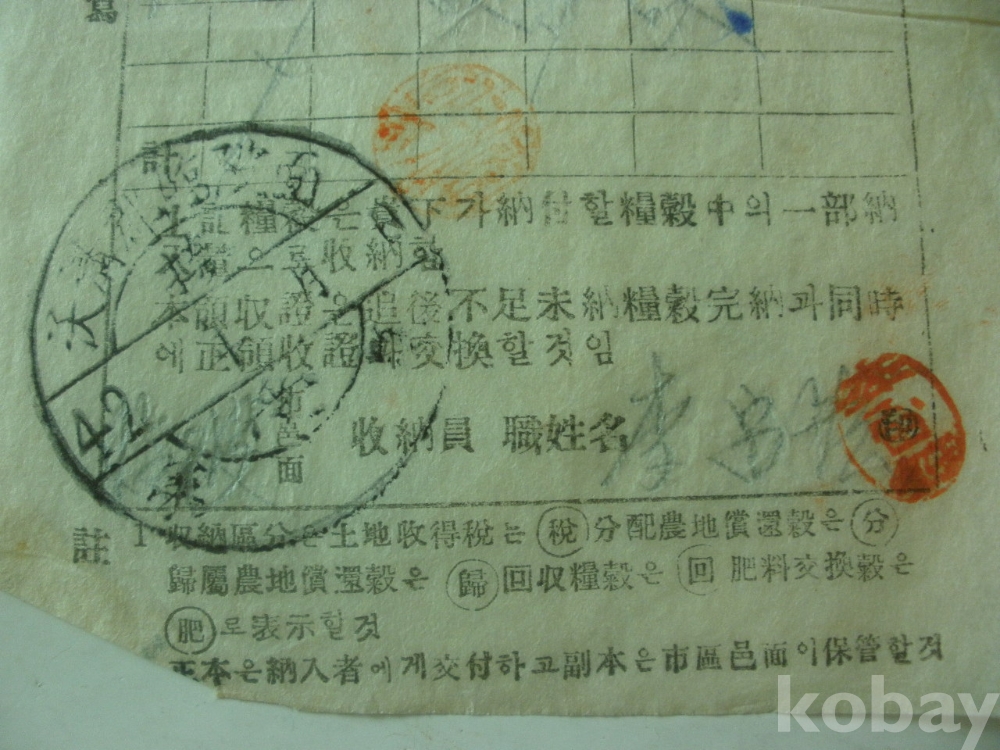 寫
計
上記糧穀는貴下가納付할糧穀中의一部納
入額으로收納함
本領收證은追後不足未納糧穀完納과同時
에正領收證과交換할것임
市
邑
面
收納員 職姓名
李
印
註 1 收納區分은土地收得稅는 稅 分配農地償還穀은 分
歸屬農地償還穀은 歸 回收糧穀은 回 肥料交換穀은
肥 로表示할것
正本은納入者에게交付하고副本은市區邑面이保管할것
kobay